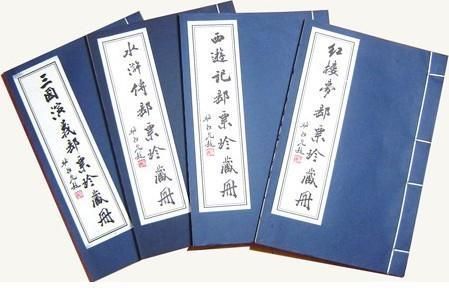 三国演义邮票珍藏册
水浒传邮票珍藏册
西遊记邮票珍藏册
红楼梦邮票珍藏册